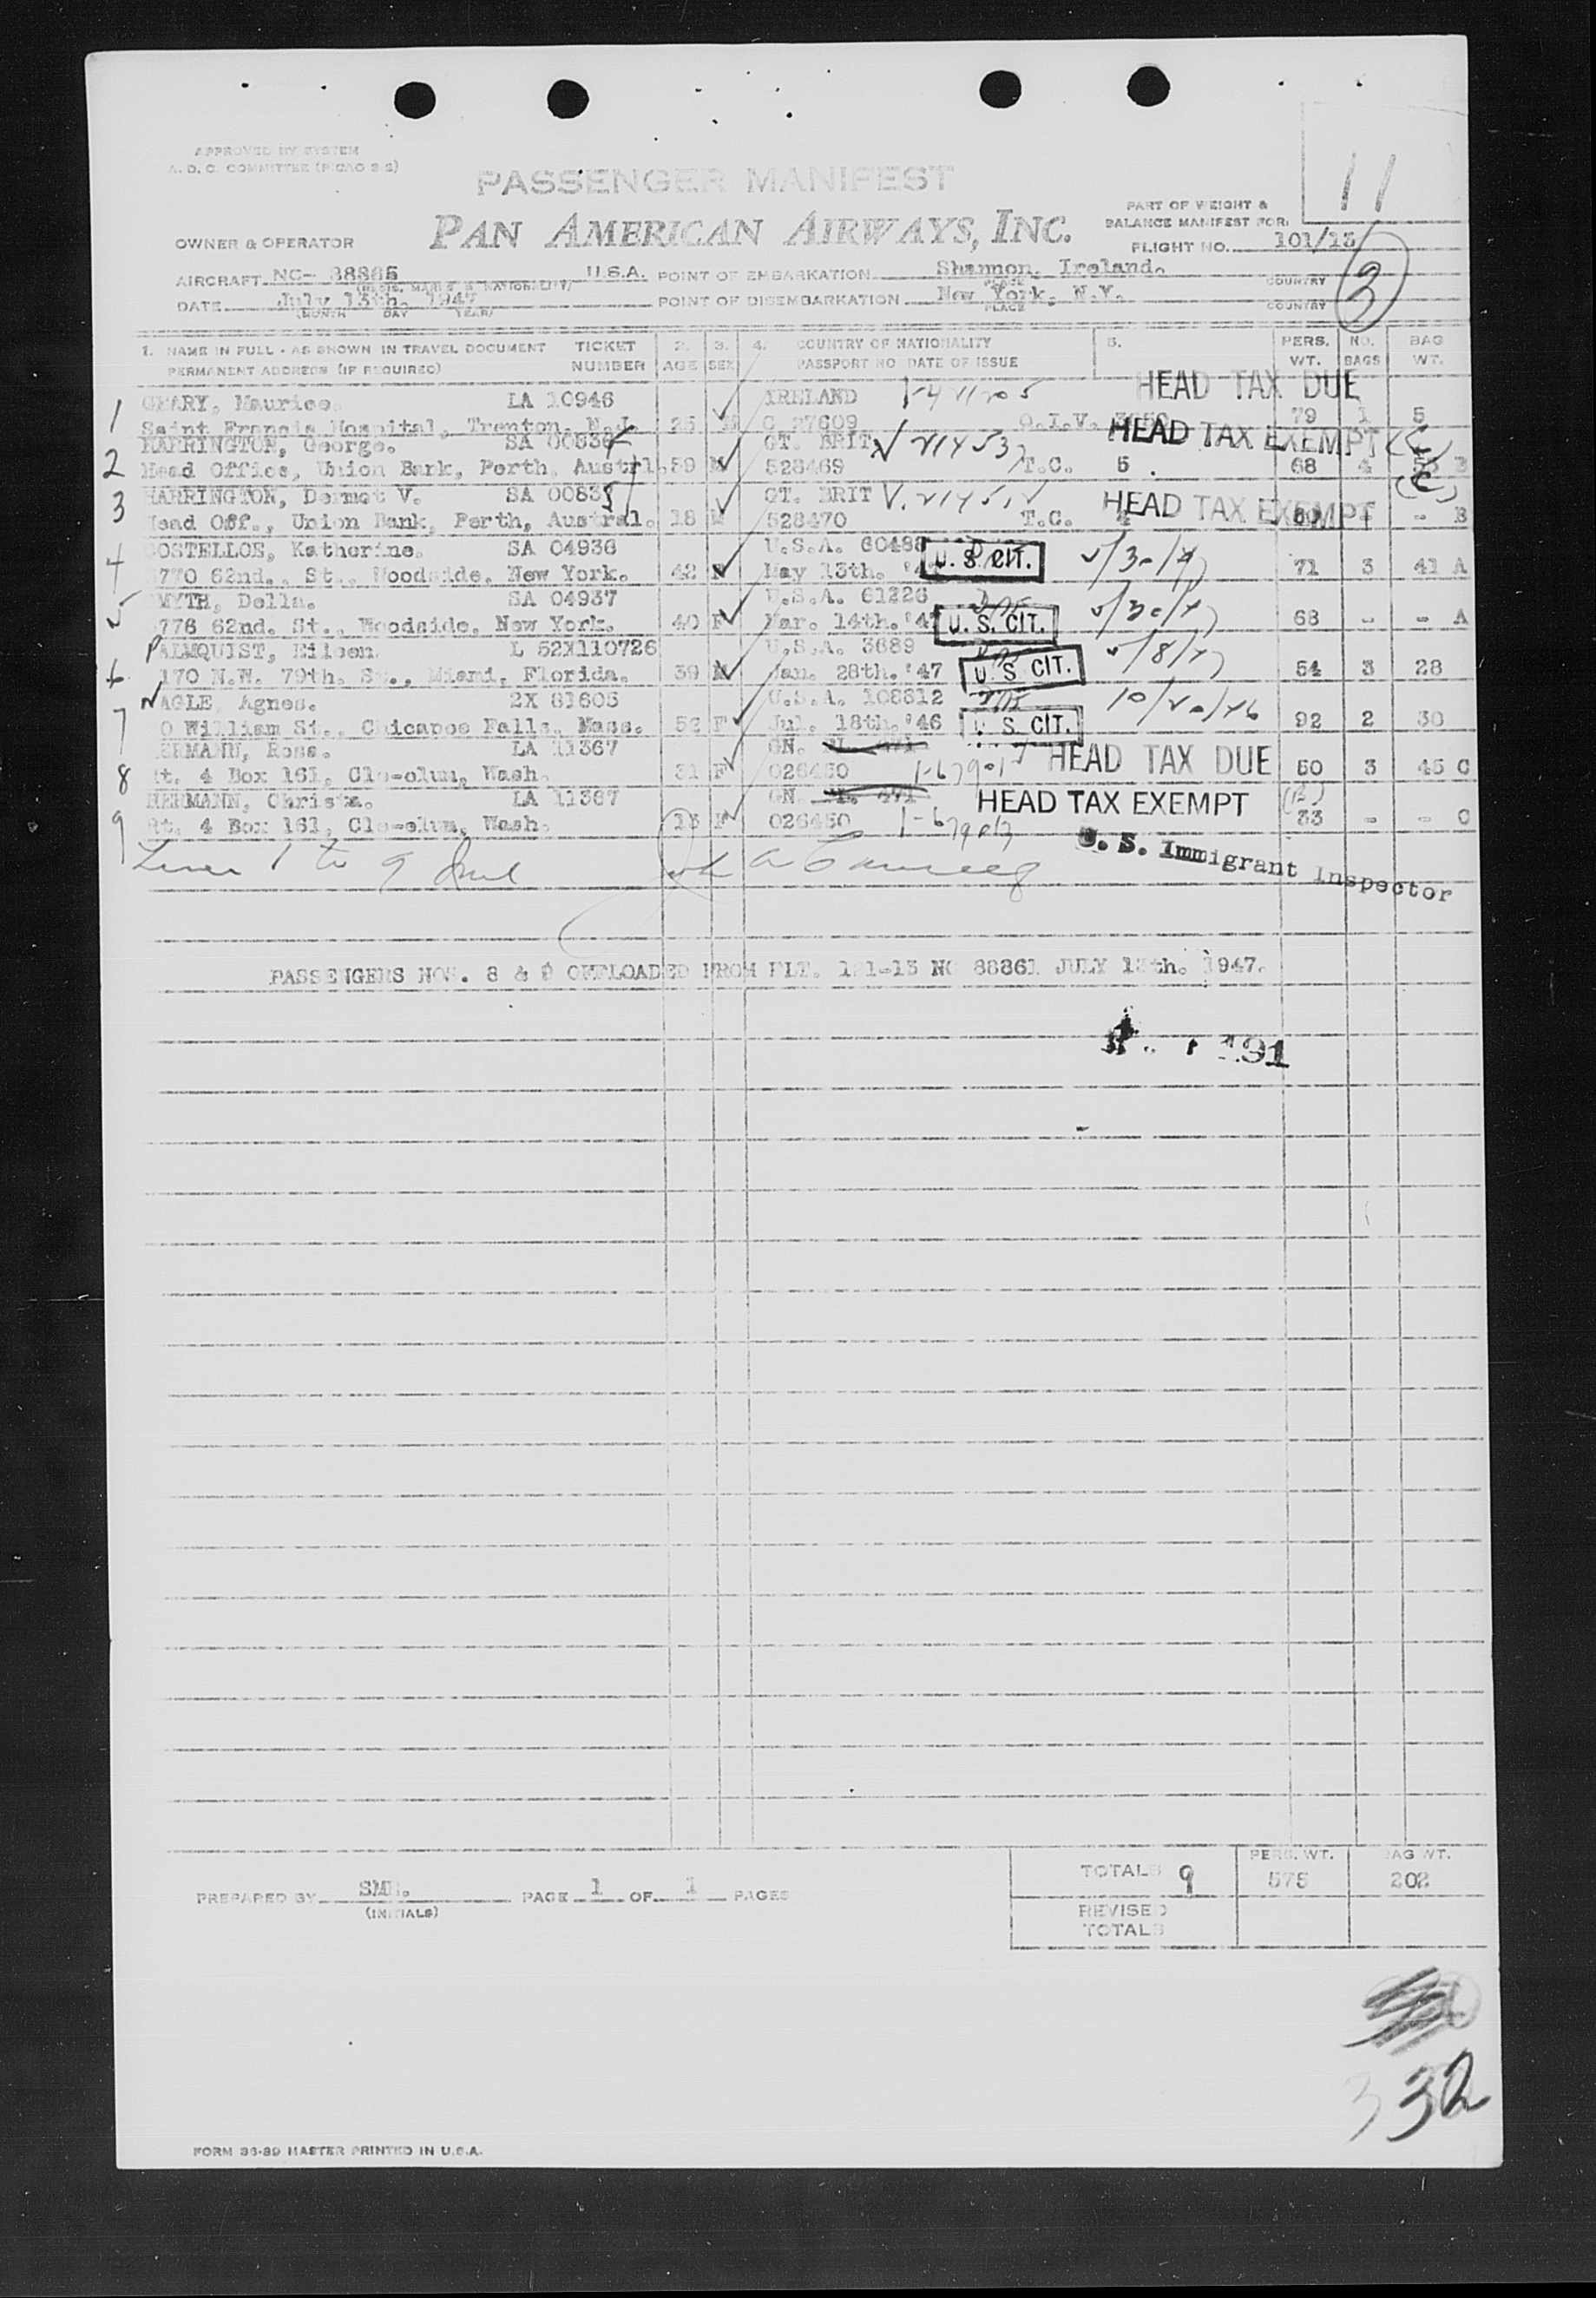 APPROVED BY SYSTEM
A. D. C. COMMITTEE (PICAO 2-2)
PASSENGER MANIFEST
11
PART OF WEIGHT &
BALANCE MANIFEST FOR:
PAN AMERICAN AIRWAYS, INC.
OWNER & OPERATOR
FLIGHT NO. 101/13
AIRCRAFT NC- 88865 U.S.A. POINT OF EMBARKATION Shannon, Ireland. COUNTRY
3
DATE July 13th. 1947 POINT OF DISEMBARKATION New York, N.Y. COUNTRY
(MONTH DAY YEAR) PLACE
1. NAME IN FULL - AS SHOWN IN TRAVEL DOCUMENT TICKET 2. 3. 4. COUNTRY OF NATIONALITY 5. PERS. NO. BAG
PERMANENT ADDRESS (IF REQUIRED) NUMBER AGE SEX PASSPORT NO DATE OF ISSUE WT. BAGS WT.
HEAD TAX DUE
1 GEARY, Maurice. LA 10946 IRELAND
Saint Francis Hospital, Trenton, N.J. 25 M C 27609 Q.I.V. 79 1 5
HEAD TAX EXEMPT
2 HARRINGTON, George. SA 00834 GT. BRIT V 214532
Head Office, Union Bank, Perth, Austrl. 59 M 528469 T.C. 5 68 4 B
3 HARRINGTON, Dermot V. SA 00835 GT. BRIT V. HEAD TAX EXEMPT
Head Off., Union Bank, Perth, Austral. 18 M 528470 T.C. 4 - B
4 COSTELLOE, Katherine. SA 04936 U.S.A. 60488
770 62nd., St., Woodside, New York. 42 F May 13th. U. S. CIT. 71 3 41 A
5 SMYTH, Della. SA 04937 U.S.A. 61226
776 62nd. St., Woodside, New York. 40 F Mar. 14th. '47 U. S. CIT. 68 - - A
6 PALMQUIST, Eileen L 52X110726 U.S.A. 3689
170 N.W. 79th. St., Miami, Florida. 39 Jan. 28th. '47 U. S CIT. 5/8/47 54 3 28
7 NAGLE, Agnes. 2X 61605 U.S.A. 108612 10/20/46
0 William St., Chicapoe Falls, Mass. 52 F Jul. 18th. '46 U. S CIT. 92 2 30
8 HERMANN, Rosa. LA 11367 GN. HEAD TAX DUE
Rt. 4 Box 161, Cle-elum, Wash. 31 F 026450 50 3 45 C
9 HERMANN, Christa. LA 11367 GN. HEAD TAX EXEMPT
Rt. 4 Box 161, Cle-elum, Wash. 13 F 026450 33 - - C
U. S. Immigrant Inspector
Lines 1 to 9 Incl
PASSENGERS NOS. 8 & 9 OFFLOADED FROM FLT. 121-13 NC 88861 JULY 13th. 1947.
191
TOTALS 9 PERS. WT. BAG WT.
575 202
PREPARED BY SMB. PAGE 1 OF 1 PAGES
(INITIALS)
REVISED
TOTALS
332
FORM 36-89 MASTER PRINTED IN U.S.A.